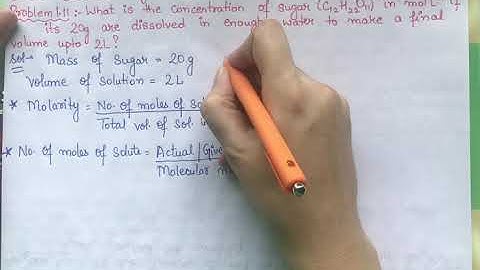 Problem 1.11:- What is the concentration of sugar (C12H22O11) in mol L if
its 20g are dissolved in enough water to make a final
volume upto 2L?
Sol→ Mass of Sugar = 20g
Volume of solution = 2L
* Molarity = No. of moles of
Total vol. of sol.
* No. of moles of solute = Actual/
Molecular